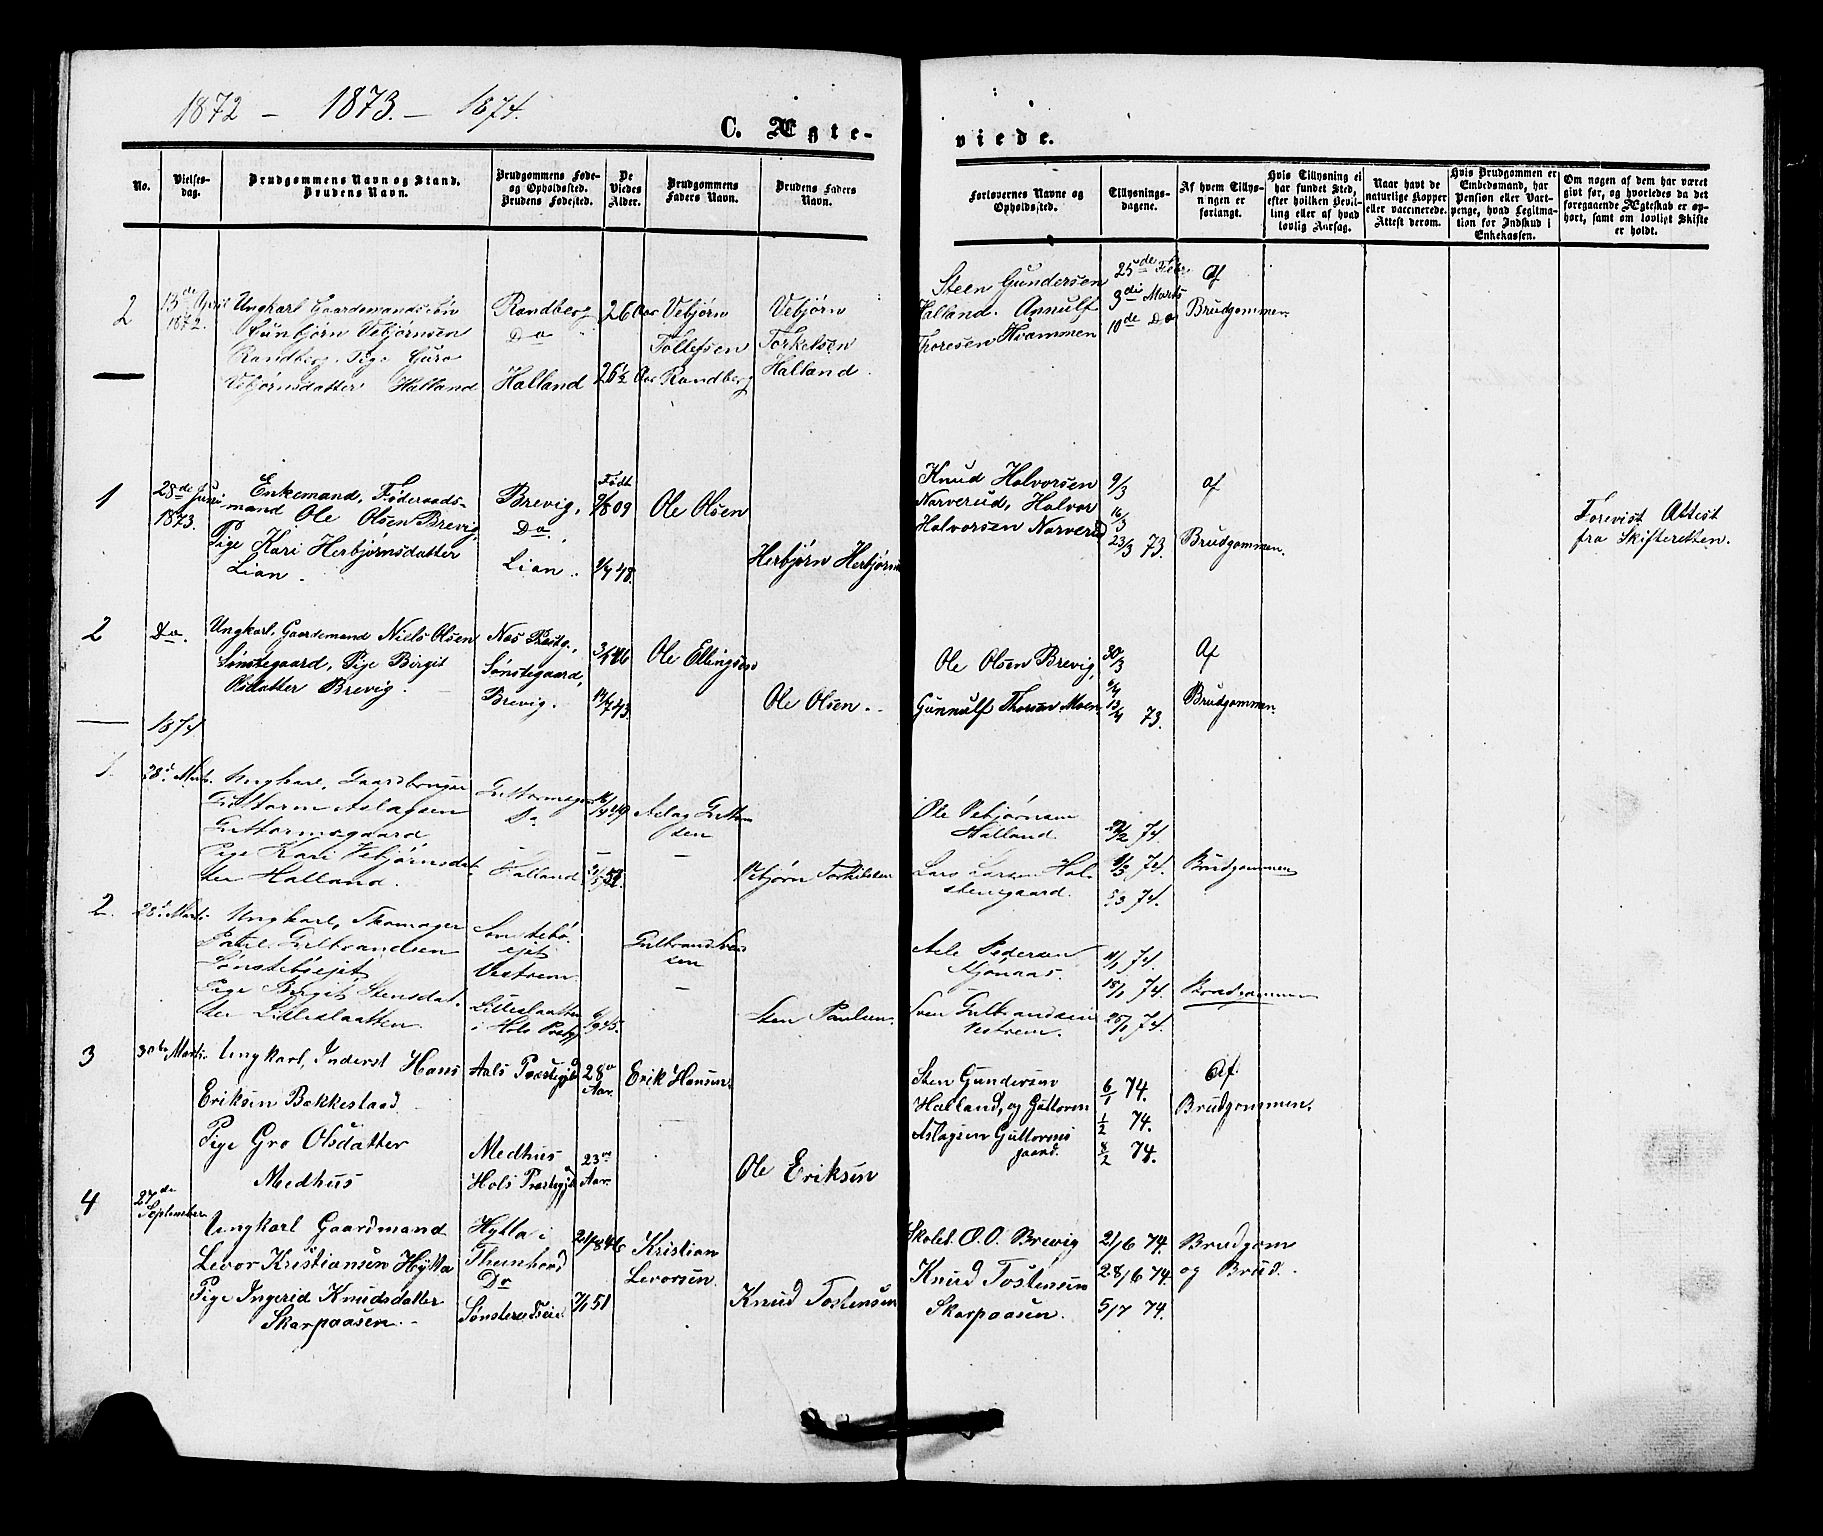 1872 – 1873. – 1874.
C. Ægte-
viede.
No.
Vielses-
dag.
Brudgommens Navn og Stand.
Brudens Navn.
Brudgommens Føde-
og Opholdssted.
Brudens Fødested.
De
Viedes
Alder.
Brudgommens
Faders Navn.
Brudens Faders
Navn.
Forlovernes Navne og
Opholdssted.
Tillysnings-
dagene.
Af hvem Tillys-
ningen er
forlangt.
Hvis Tillysning ei
har fundet Sted,
efter hvilken Bevil-
ling eller af hvad
lovlig Aarsag.
Naar havt de
naturlige Kopper
eller vaccinerede.
Attest derom.
Hvis Brudgommen er
Embedsmand, har
Pension eller Vart-
penge, hvad Legitima-
tion for Indskud i
Enkekassen.
Om nogen af dem har været
gift før, og hvorledes da det
foregaaende Ægteskab er op-
hørt, samt om lovligt Skifte
er holdt.
2
13de April
1872.
Ungkarl Gaardmandssøn
Gunbjørn Vebjørnsen
Randberg. Pige Guro
Vebjørnsdatter Halland
Randberg
Do
Halland
26 Aar
26½ Aar
Vebjørn
Tollefsen
Randberg
Vebjørn
Torkelsen
Halland.
Steen Gundersen
Halland. Annulf
Thoresen Hvammen
25de Febr
3die Marts
10de Do
Af
Brudgommen
1
28de Juni
1873.
Enkemand, Føderaads-
mand Ole Olsen Brevig
Pige Kari Herbjørnsdatter
Lian.
Brevig,
Do
Lian.
Født
9/8 09
9/7 48.
Ole Olsen
Herbjørn Herbjørns
Knud Halvorsen
Narverud, Halvor
Halvorsen Narverud
9/3
16/3
23/3 73.
Af
Brudgommen.
Forevist Attest
fra Skifteretten.
2
Do.
Ungkarl, Gaardemand Niels Olsen
Sønstegaard, Pige Birgit
Olsdatter Brevig.
Nes Præstg.,
Sønstegaard,
Brevig.
3/4 46
14/7 43.
Ole Ellingsen
Ole Olsen.
Ole Olsen Brevig,
Gunnulf Thorsen Moen.
30/3
6/4
13/4 73.
Af
Brudgommen.
1874
1.
28de Marts.
Ungkarl, Gaardbruger
Guttorm Aslagsen
Guttormsgaard
Pige Kari Vebjørnsdat-
ter Halland.
Guttormsgaard
Do
Halland
Aslag Guttorm
sen
Vebjørn Torkilsen
Ole Vebjørnsen
Halland.
Lars Larsen Hol-
stensgaard.
22/2 74.
1/3 74.
5/3 74.
Brudgommen
2.
28de Marts.
Ungkarl, Skomager
Paul Gulbrandsen
Sønstebøejet
Pige Birgit Stensdat-
ter Lilleslaatten.
Sønstebø-
ejet
Vestrem.
Lilleslaatten
i Hols Præstg
Gulbrand Sven
sen
Sten Paulsen.
Asle Pedersen
Sven Gulbrandsen
Vestrem.
11/1 74.
18/1 74.
25/1 74.
Brudgommen
3
30te Marts.
Ungkarl, Inderst Hans
Eriksen Bakkestad
Pige Gro Olsdatter
Medhus
Aals Præstegjeld
Medhus
Hols Præstegjeld
28
Aar.
23
Aar.
Erik Hansen
Ole Eriksen
Sten Gundersen
Halland, og Guttorm
Aslagsen Guttorms
gaard.
6/1 74.
1/2 74.
8/2 74.
Af
Brudgommen.
4
27de
September
Ungkarl Gaardmand
Levor Kristiansen Hytta
Pige Ingerid Knudsdatter
Skarpaasen.
Hytta i
Do
21/8 46
7/1 51
Kristian
Levorsen
Knud Tostensen
Skolel. O. O. Brevig
Knud Tostensen
Skarpaasen.
21/6 74.
28/6 74.
5/7 74.
Brudgom
og Brud.